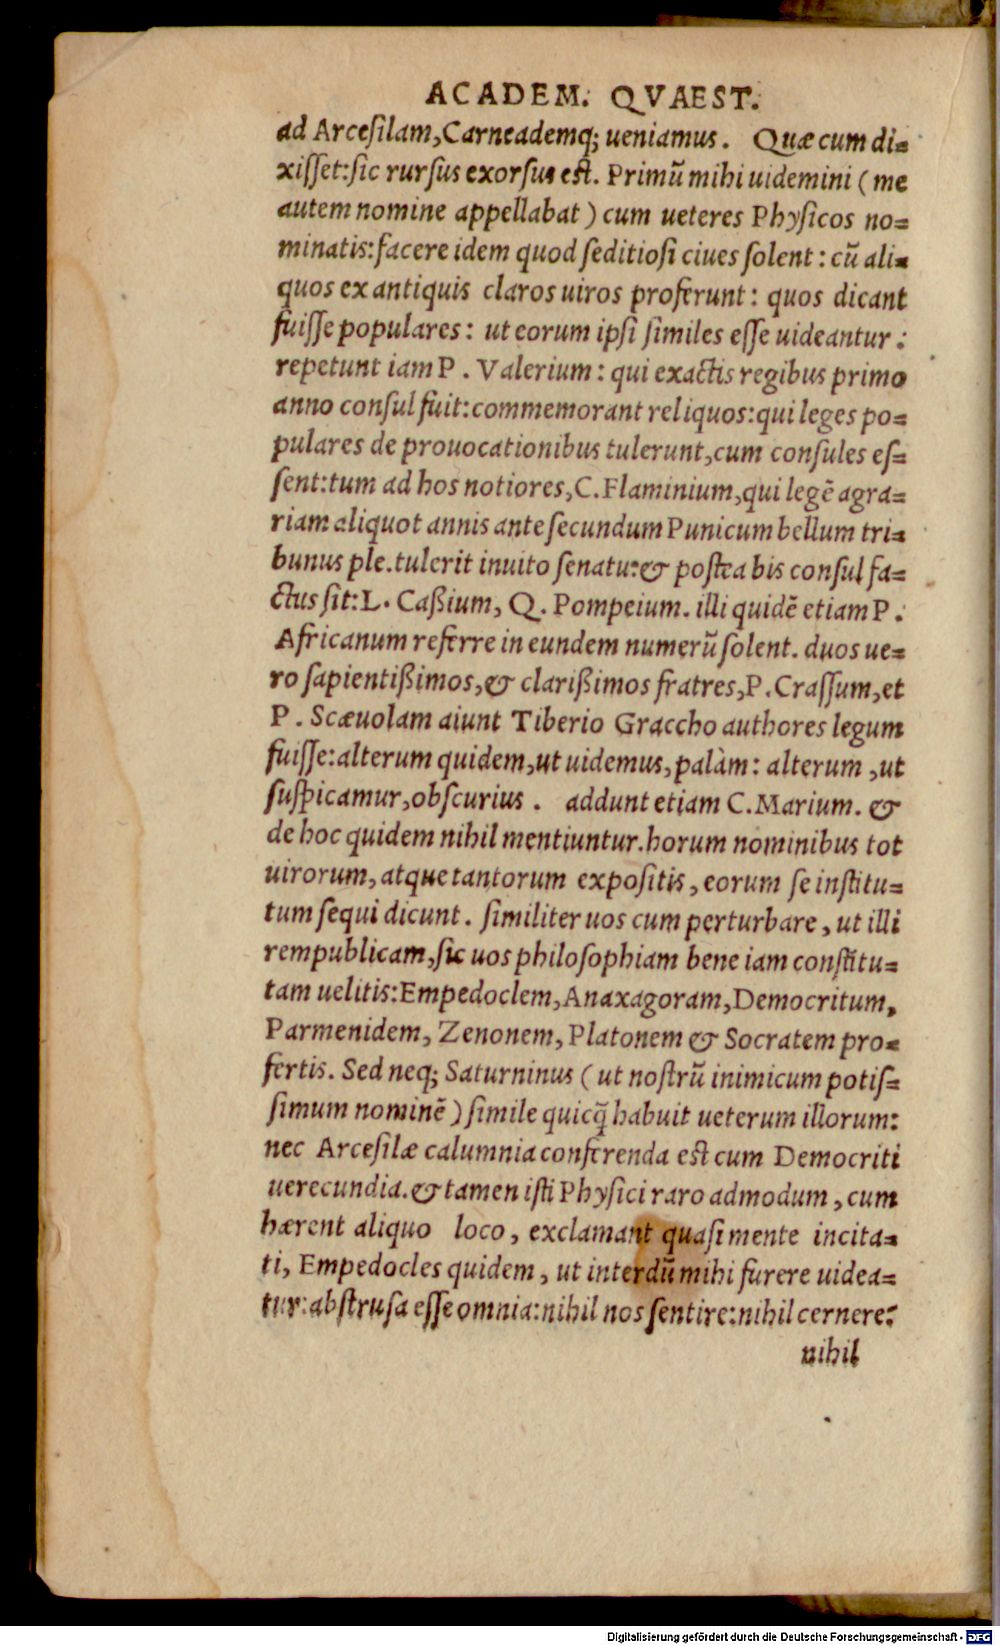 ACADEM. QVAEST.
ad Arcesilam, Carneademq; ueniamus. Quæ cum di=
xisset: sic rursus exorsus est. Primũ mihi uidemini (me
autem nomine appellabat) cum ueteres Physicos no=
minatis: facere idem quod seditiosi ciues solent: cũ ali=
quos ex antiquis claros uiros proferunt: quos dicant
fuisse populares: ut eorum ipsi similes esse uideantur:
repetunt iam P. Valerium: qui exactis regibus primo
anno consul fuit: commemorant reliquos: qui leges po=
pulares de prouocationibus tulerunt, cum consules es=
sent: tum ad hos notiores, C. Flaminium, qui legẽ agra=
riam aliquot annis ante secundum Punicum bellum tri=
bunus ple. tulerit inuito senatu: & postea bis consul fa=
ctus sit: L. Caßium, Q. Pompeium. illi quidẽ etiam P.
Africanum referre in eundem numerũ solent. duos ue=
ro sapientißimos, & clarißimos fratres, P. Crassum, et
P. Scæuolam aiunt Tiberio Graccho authores legum
fuisse: alterum quidem, ut uidemus, palàm: alterum, ut
suspicamur, obscurius. addunt etiam C. Marium. &
de hoc quidem nihil mentiuntur. horum nominibus tot
uirorum, atque tantorum expositis, eorum se institu=
tum sequi dicunt. similiter uos cum perturbare, ut illi
rempublicam, sic uos philosophiam bene iam constitu=
tam uelitis: Empedoclem, Anaxagoram, Democritum,
Parmenidem, Zenonem, Platonem & Socratem pro=
fertis. Sed neq; Saturninus (ut nostrũ inimicum potis=
simum nominẽ) simile quicq̃ habuit ueterum illorum:
nec Arcesilæ calumnia conferenda est cum Democriti
uerecundia. & tamen isti Physici raro admodum, cum
hærent aliquo loco, exclamant quasi mente incita=
ti, Empedocles quidem, ut interdũ mihi furere uidea=
tur: abstrusa esse omnia: nihil nos sentire: nihil cernere:
nihil
Digitalisierung gefördert durch die Deutsche Forschungsgemeinschaft - DFG